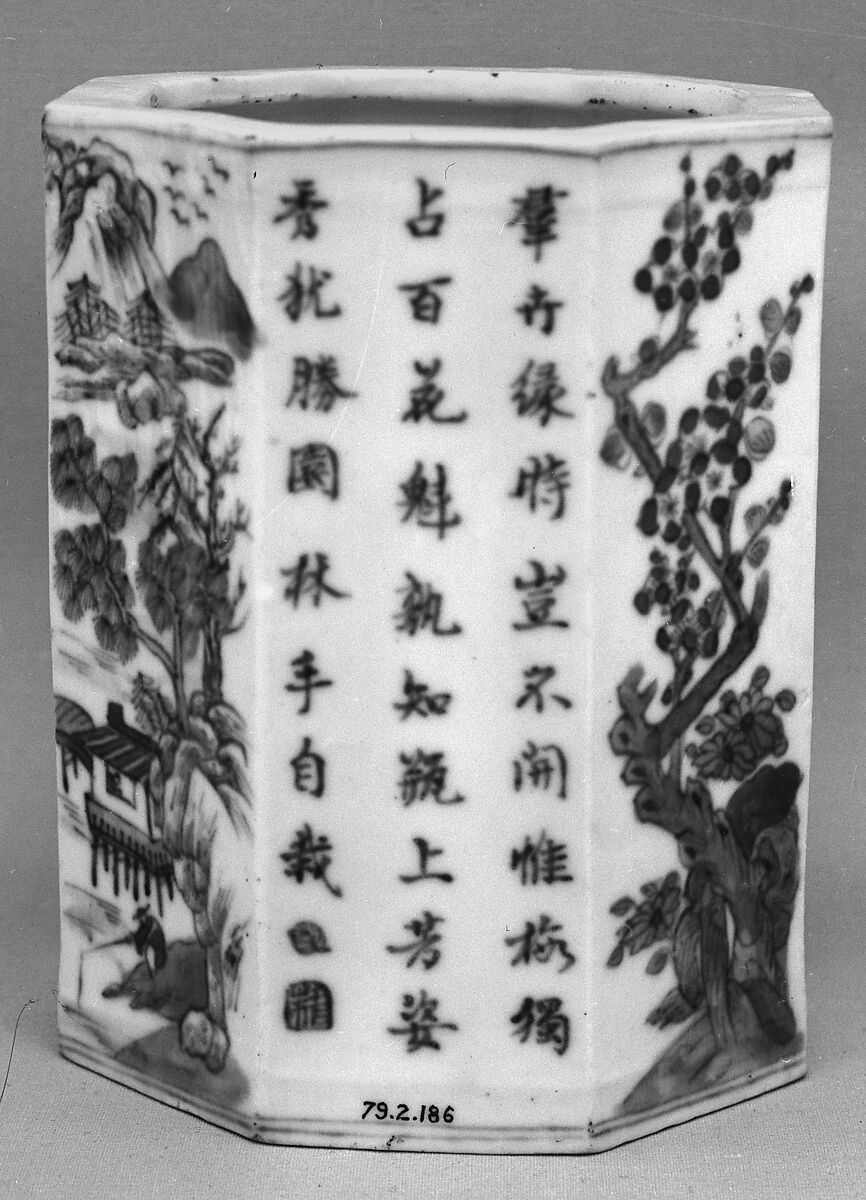 羣卉緑時豈不開惟梅獨
占百花魁孰知瓶上芳姿
秀犹勝園林手自栽
79.2.186